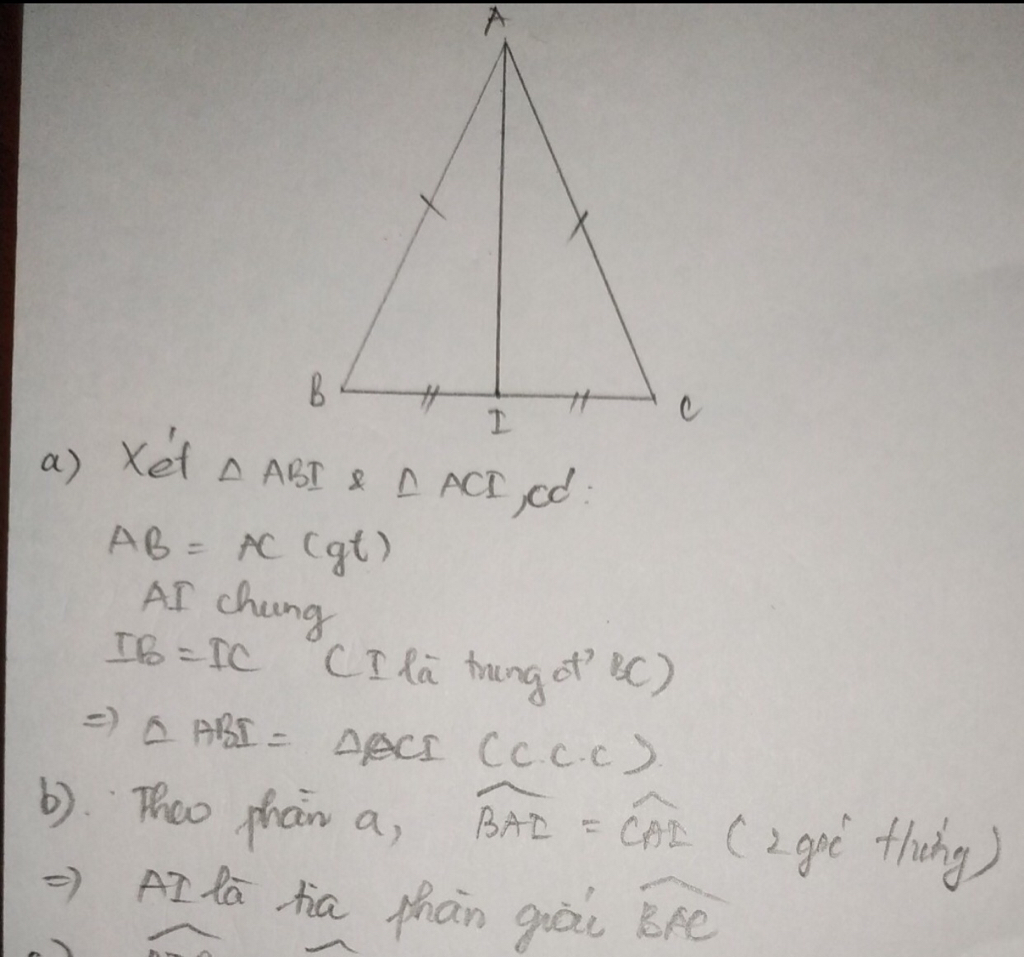 A
B
I
C
a) Xét Δ ABI & Δ ACI, có:
AB = AC (gt)
AI chung
IB = IC (I là trung đ' BC)
=> Δ ABI = Δ ACI (c.c.c)
b). Theo phần a, BAI = CAI (2 góc tương ứng)
=> AI là tia phân giác BAC